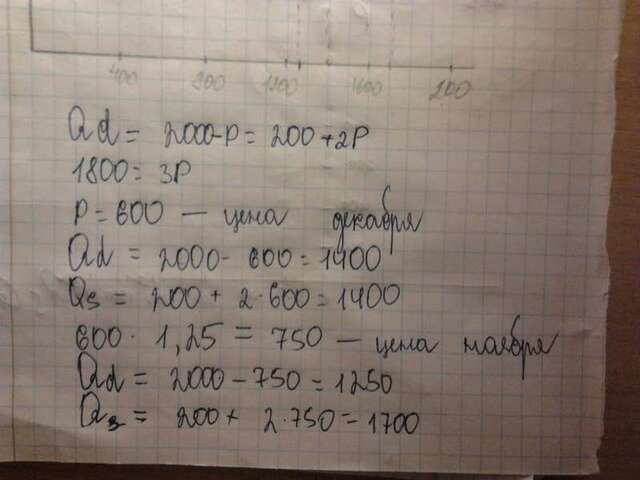 400 800 1200 1600 2000
Qd = 2000-P = 200+2P
1800 = 3P
P = 600 — цена декабря
Qd = 2000 - 600 = 1400
Qs = 200 + 2·600 = 1400
600 · 1,25 = 750 — цена ноября
Qd = 2000 - 750 = 1250
Qs = 200 + 2·750 = 1700